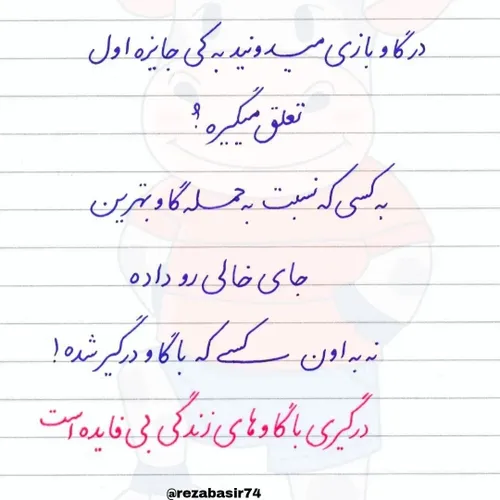 در گاو بازی میدونید به کی جایزه اول
تعلق میگیره ؟
به کسی که نسبت به حمله گاو بهترین
جای خالی رو داده
نه به اون کسی که با گاو درگیر شده !
درگیری با گاوهای زندگی بی فایده است
@rezabasir74